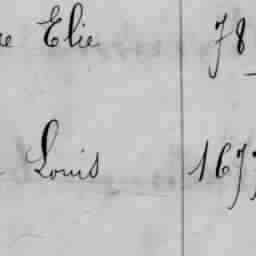 re Elie 78
Louis 1677